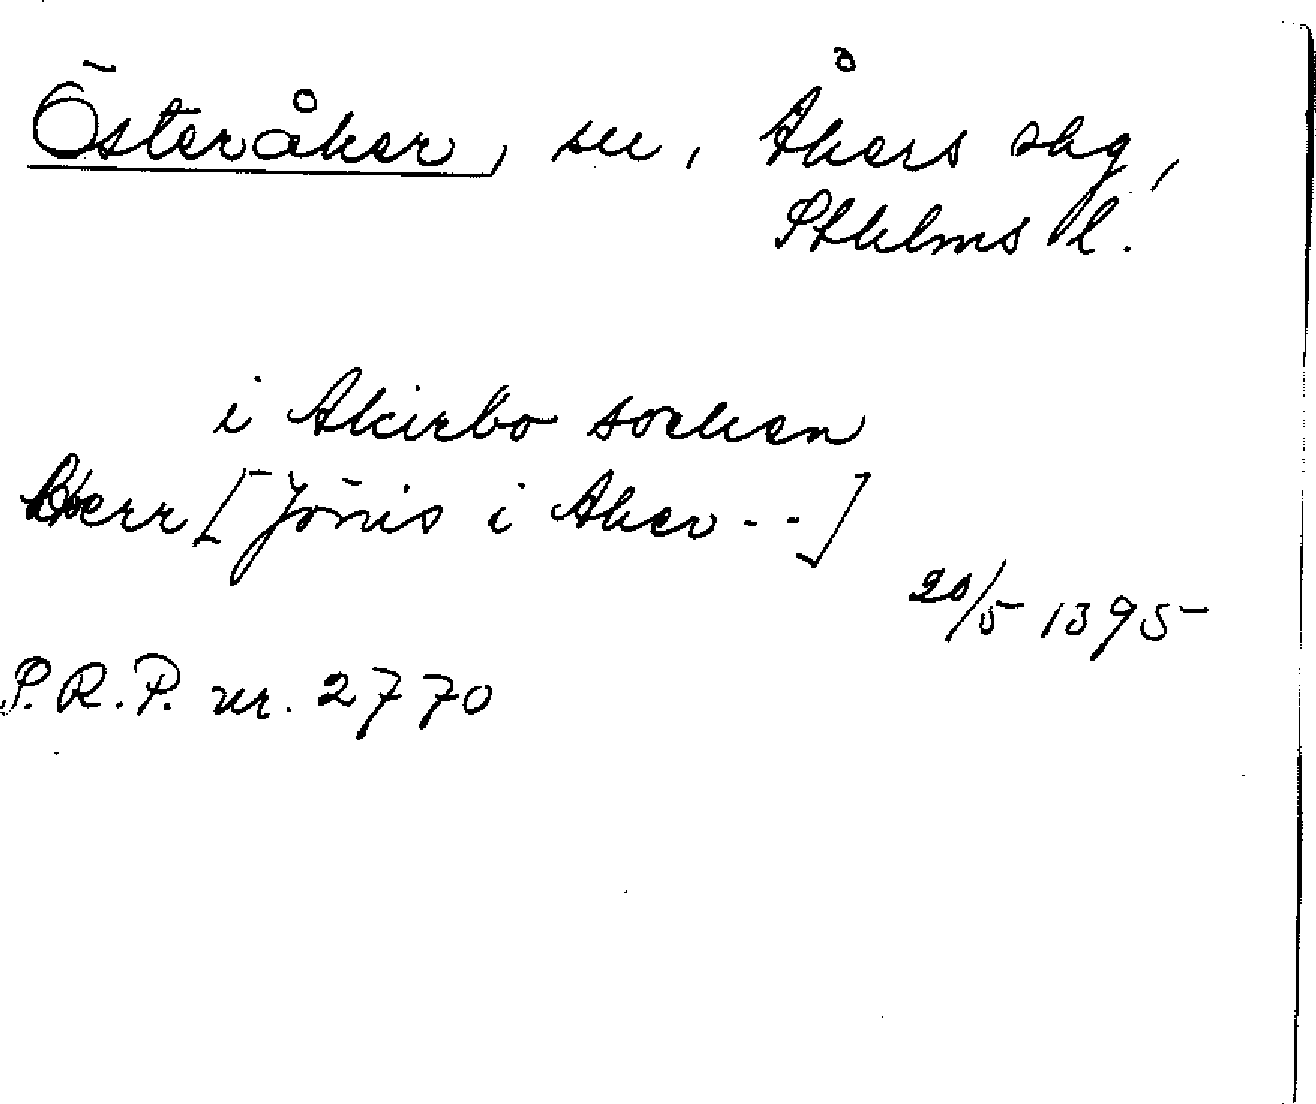 Österåker, sn, Åkers skg,
Sthlms l.
i Akirbo socken
Herr [Jönis i Aker --]
20/5 1395
P.R.P. nr. 2770